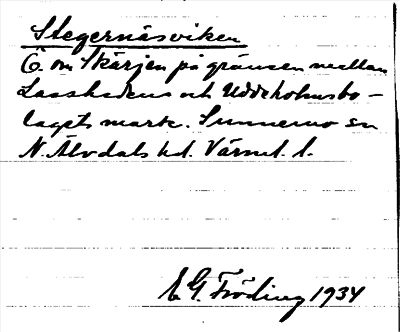 Stegernäsviken
Ö. om Skärjen på gränsen mellan
Lasshedens och Uddeholmsbo-
lagets mark. Sunnemo sn
N. Älvdals hd. Värml. l.
E G. Fröding 1934